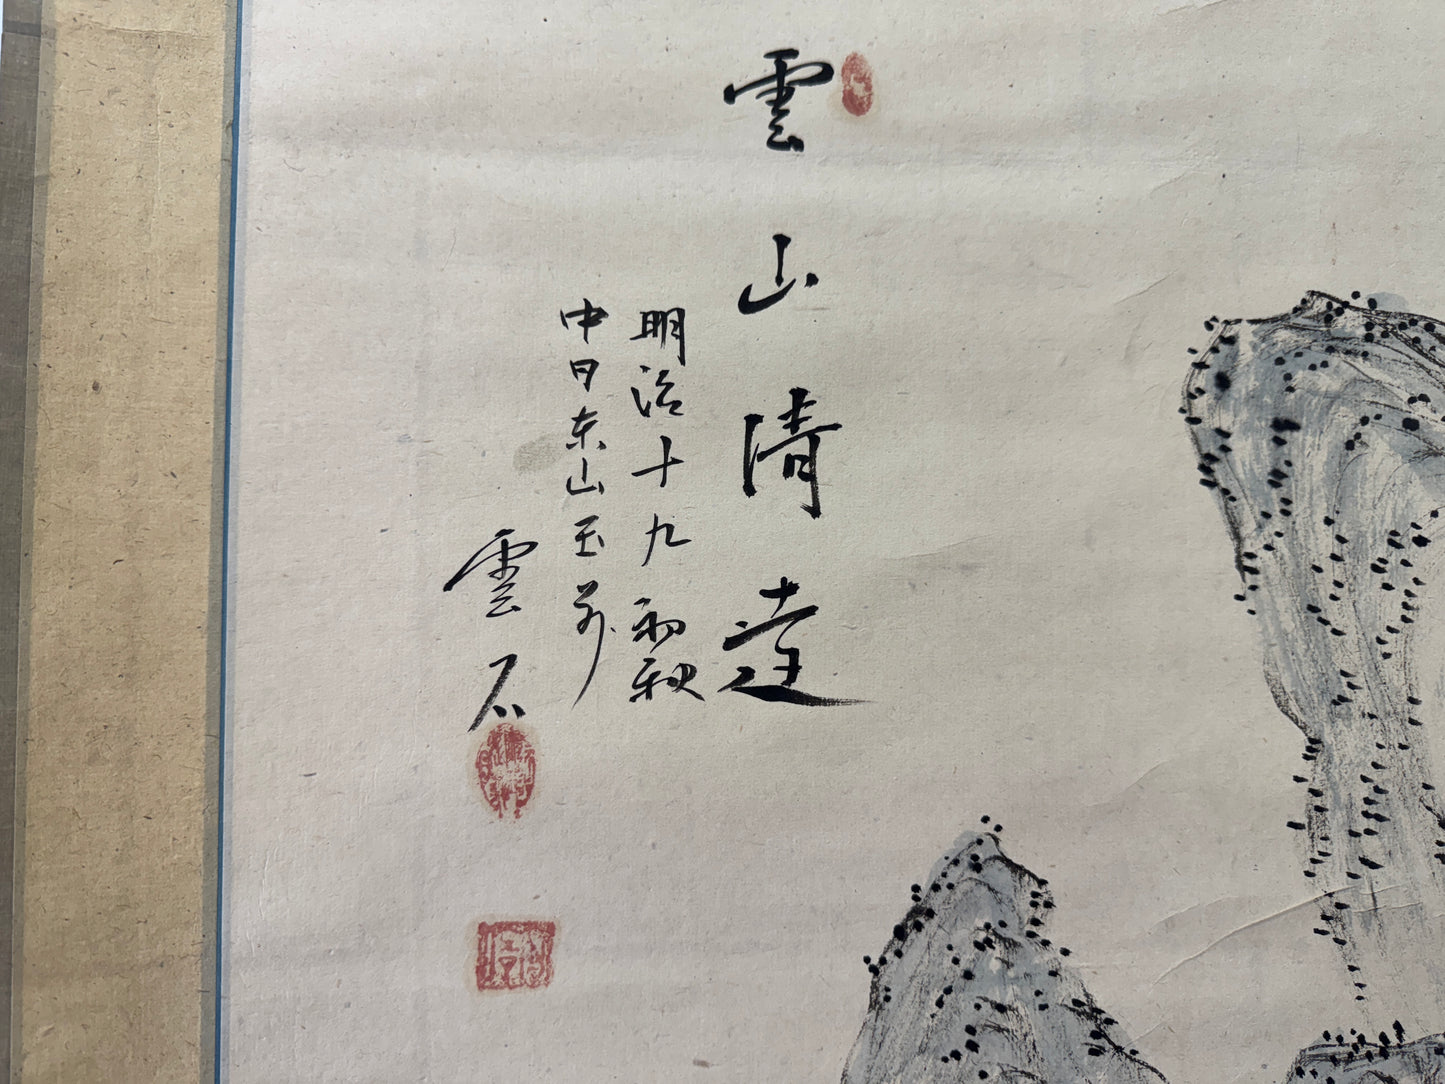 雲山清逵
明治十九初秋
中日東山玉
雲石